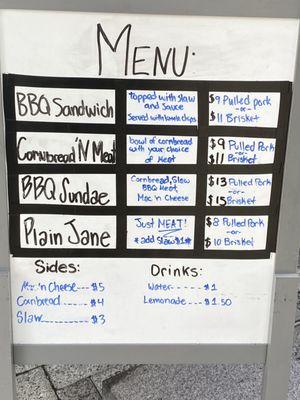 MENU:
BBQ Sandwich
topped with slaw
and sauce
Served with kettle chips
$9 Pulled pork
-or-
$11 Brisket
Cornbread 'N Meat
bowl of cornbread
with your choice
of Meat
$9 Pulled Pork
-or-
$11 Brisket
BBQ Sundae
Cornbread, Slaw
BBQ Meat
Mac 'n Cheese
$13 Pulled Pork
-or-
$15 Brisket
Plain Jane
Just MEAT!
*add Slaw $1*
$8 Pulled Pork
-or-
$10 Brisket
Sides:
Mac 'n Cheese --- $5
Cornbread ---- $4
Slaw ---- $3
Drinks:
Water ---- $1
Lemonade --- $1.50